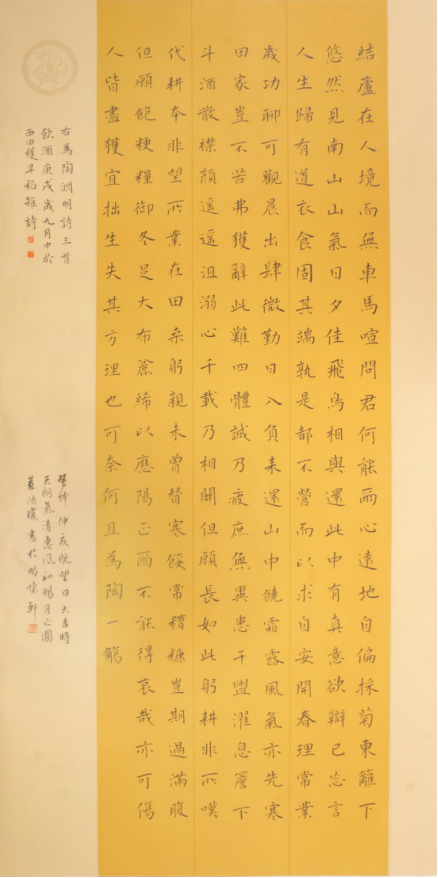 結廬在人境而無車馬喧問君何能爾心遠地自偏採菊東籬下
悠然見南山山氣日夕佳飛鳥相與還此中有真意欲辯已忘言
人生歸有道衣食固其端孰是都不營而以求自安開春理常業
歲功聊可觀晨出肆微勤日入負耒還山中饒霜露風氣亦先寒
田家豈不苦弗獲辭此難四體誠乃疲庶無異患干盥濯息簷下
斗酒散襟顏遙遙沮溺心千載乃相關但願長如此躬耕非所嘆
代耕本非望所業在田桑躬親未曾替寒餒常糟糠豈期過滿腹
但願飽粳糧御冬足大布麤絺以應陽正爾不能得哀哉亦可傷
人皆盡獲宜拙生失其方理也可奈何且為陶一觴
右為陶淵明詩三首
飲酒庚戌歲九月中於
西田獲早稻雜詩
癸卯仲夏既望日大吉時
天朗氣清惠風和暢月正圓
書於暢懷軒